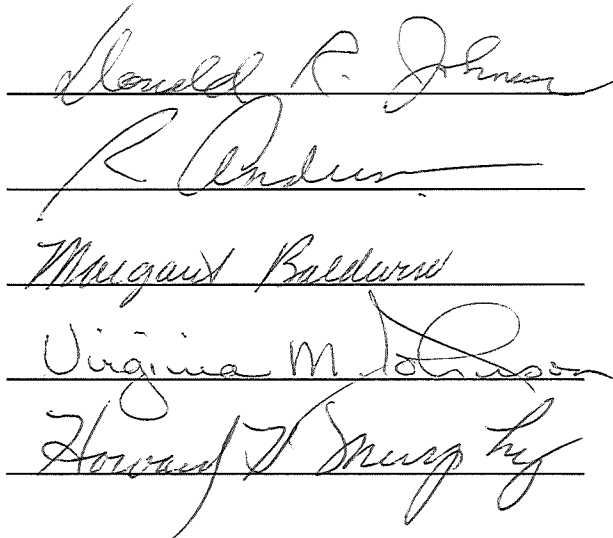 Donald R. Johnson
R Anderson
Margaret Baldwin
Virginia M Johnson
Howard V. Murphy